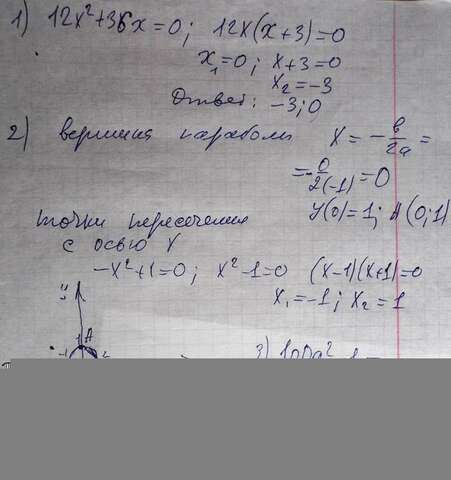 1) 12x²+36x=0; 12x(x+3)=0
x₁=0; x+3=0
x₂=-3
Ответ: -3; 0
2) вершина параболы x = -b/2a =
= -0/2(-1) = 0
y(0)=1; A(0;1)
точки пересечения
с осью X
-x²+1=0; x²-1=0 (x-1)(x+1)=0
x₁=-1; x₂=1
y
A
3) 100a²